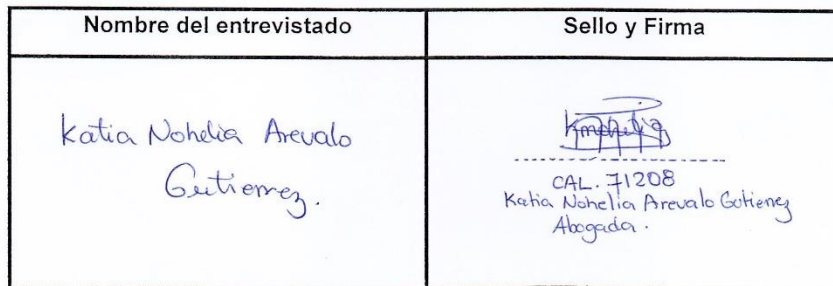 Nombre del entrevistado
Sello y Firma
Katia Nohelia Arevalo
Gutierrez.
CAL. 71208
Katia Nohelia Arevalo Gutierrez
Abogada.